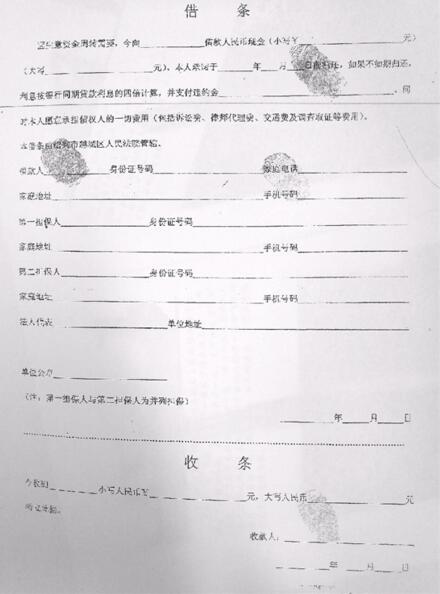 借 条
因生意资金周转需要，今向____________借款人民币现金（小写￥____________元）
（大写____________元），本人承诺于____年____月____日前归还，如果不如期归还，
利息按银行同期贷款利息的四倍计算，并支付违约金____________。同
时本人愿意承担债权人的一切费用（包括诉讼费、律师代理费、交通费及调查取证等费用）。
本借条由绍兴市越城区人民法院管辖。
借款人____________身份证号码____________家庭电话____________
家庭地址____________手机号码____________
第一担保人____________身份证号码____________
家庭地址____________手机号码____________
第二担保人____________身份证号码____________
家庭地址____________手机号码____________
法人代表____________单位地址____________
单位公章____________
（注：第一担保人与第二担保人为并列担保）
____________年____月____日
收 条
今收到____________小写人民币￥____________元，大写人民币____________元
收款人：____________
____________年____月____日